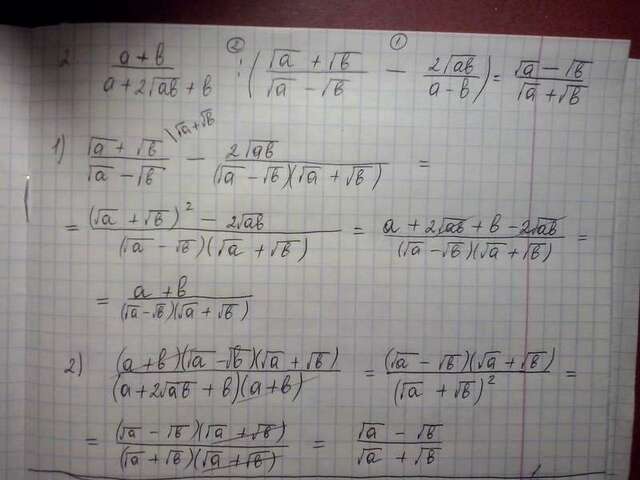 2 (a + b)/(a + 2√ab + b) : ((√a + √b)/(√a − √b) − 2√ab/(a − b)) = (√a − √b)/(√a + √b)
② ①
1) (√a + √b)/(√a − √b) \√a+√b − 2√ab/((√a − √b)(√a + √b)) =
= ((√a + √b)² − 2√ab)/((√a − √b)(√a + √b)) = (a + 2√ab + b − 2√ab)/((√a − √b)(√a + √b)) =
= (a + b)/((√a − √b)(√a + √b))
2) ((a + b)(√a − √b)(√a + √b))/((a + 2√ab + b)(a + b)) = ((√a − √b)(√a + √b))/(√a + √b)² =
= ((√a − √b)(√a + √b))/((√a + √b)(√a + √b)) = (√a − √b)/(√a + √b)